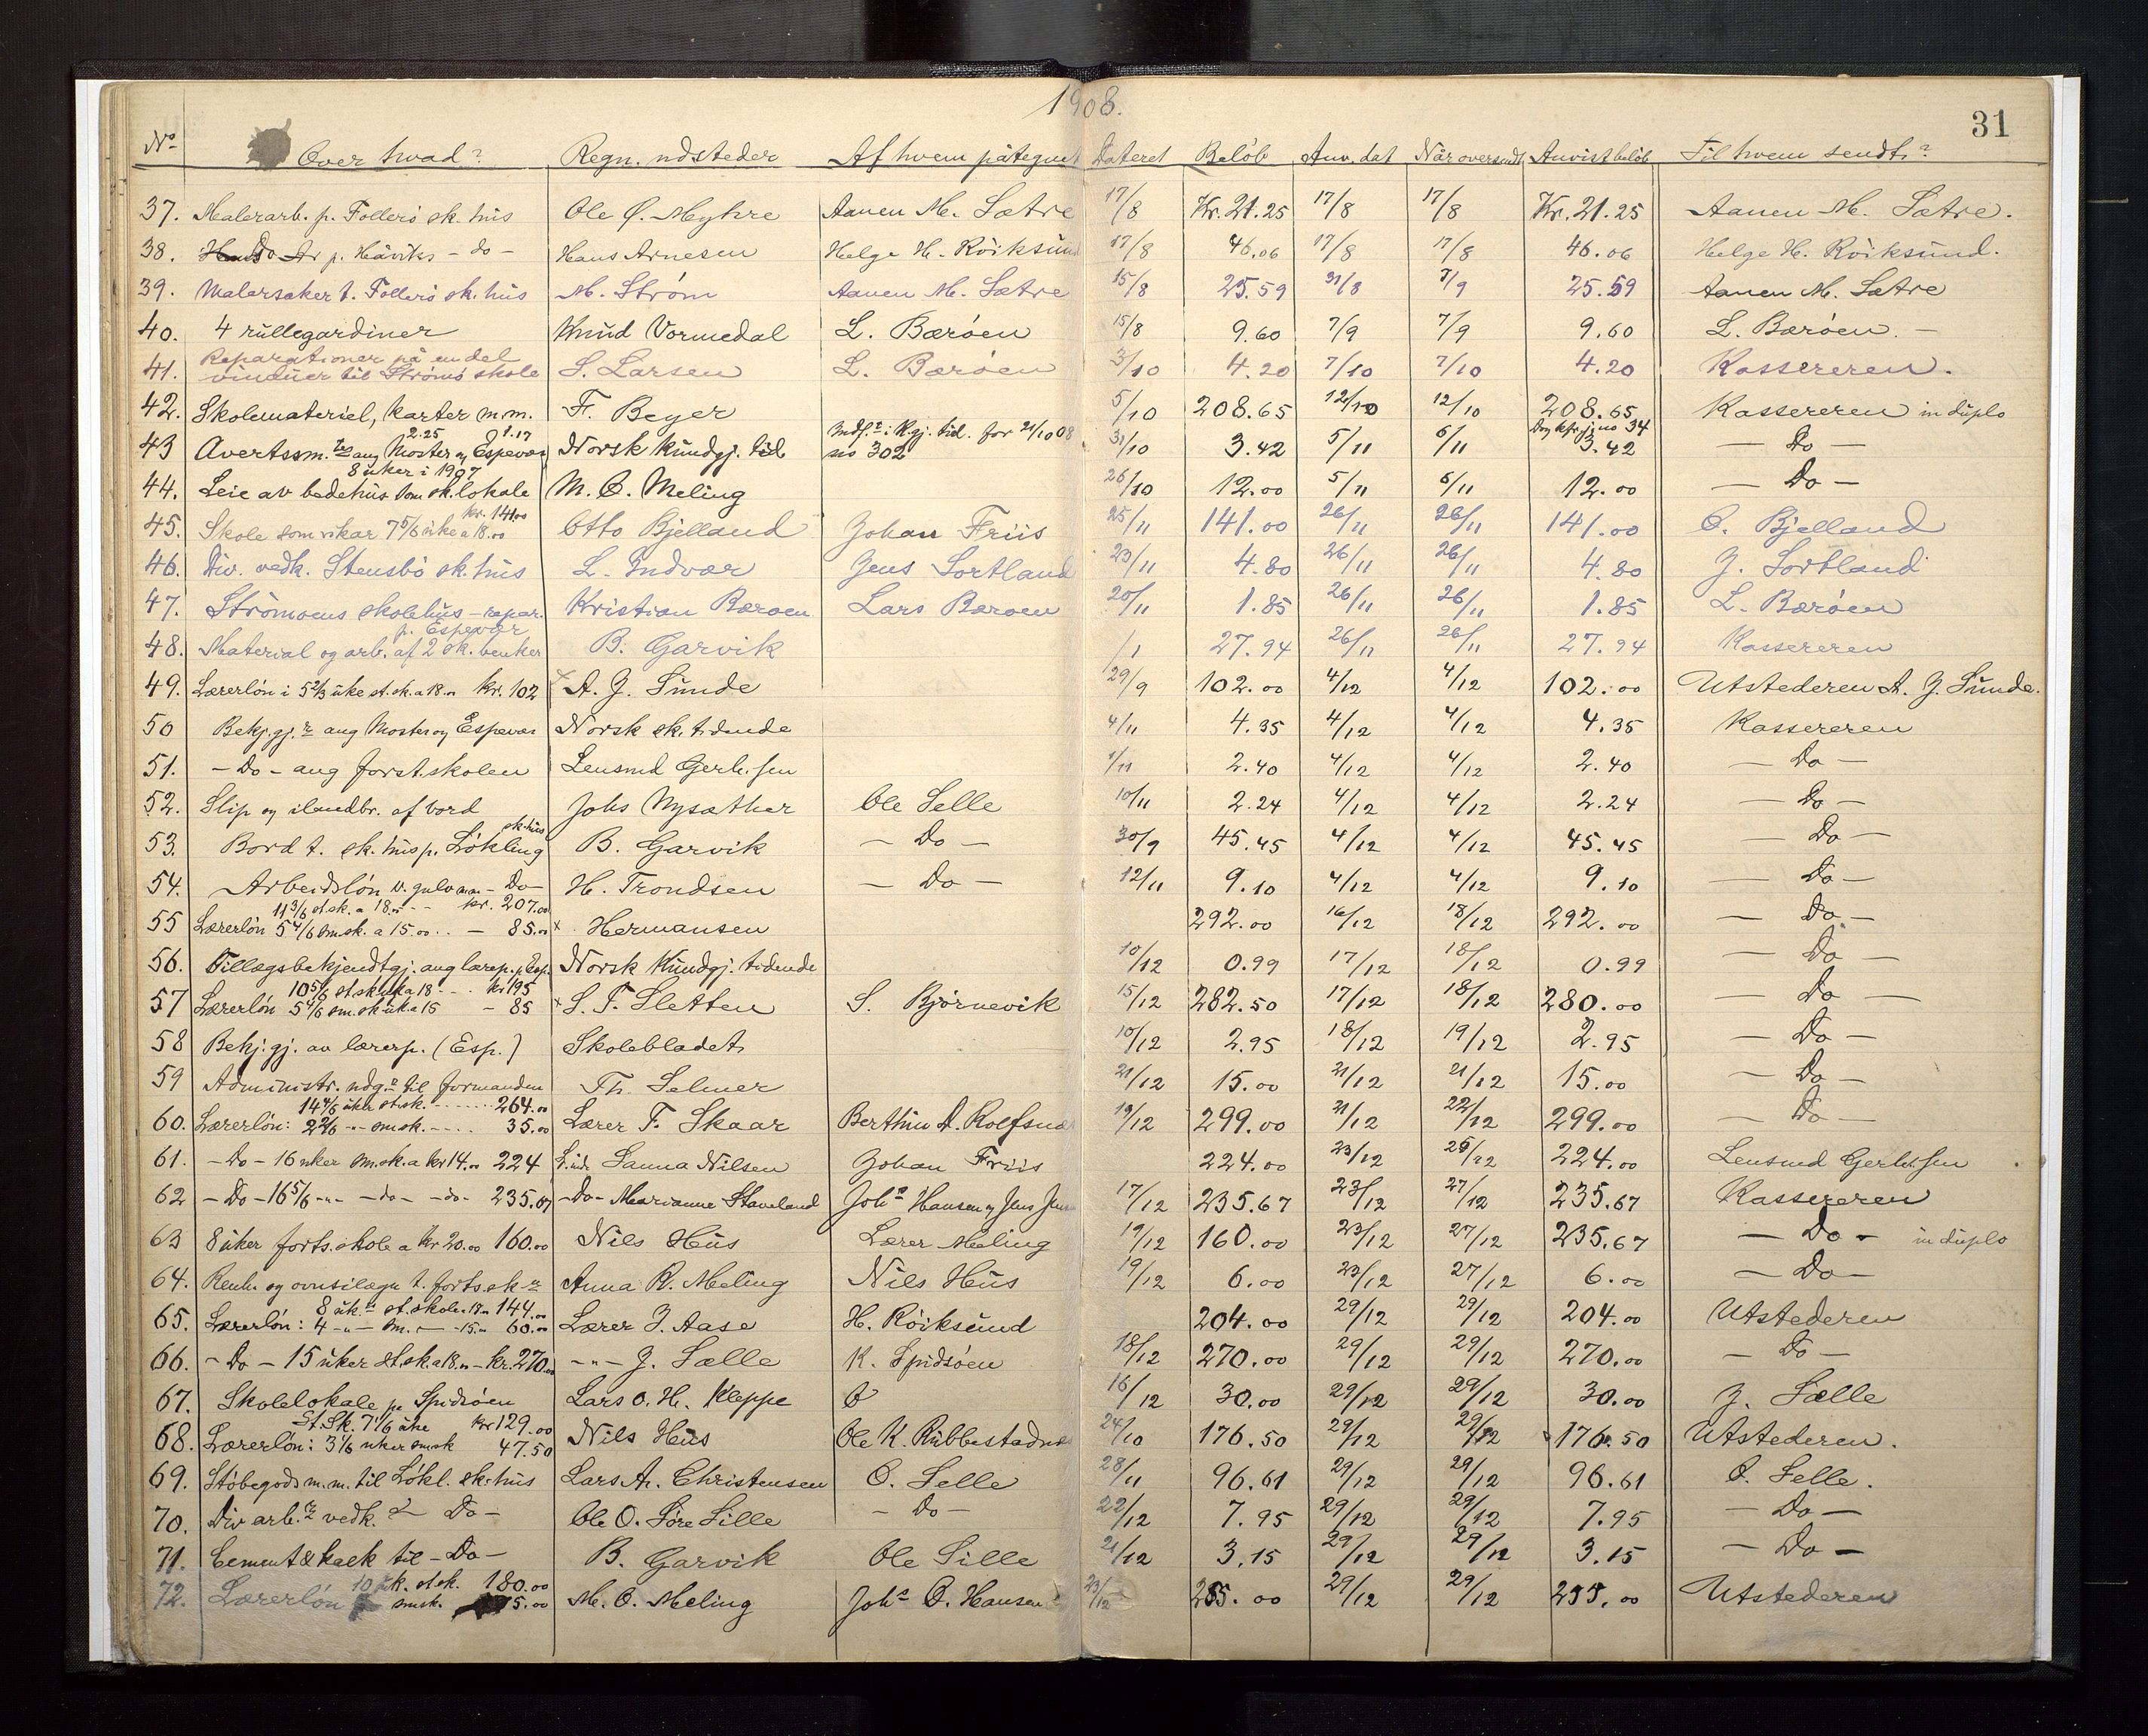 1908.
31
No Over hvad? Regn. udsteder Af hvem påtegnet Dateret Beløb Anv. dat Når oversendt Anvist beløb Til hvem sendt?
37. Malerarb. p. Follerö sk. hus Ole Ø. Myhre Aanen M. Sætre 17/8 Kr. 21.25 17/8 17/8 Kr. 21.25 Aanen M. Sætre.
38. Do p. Håviks - do - Hans Arnesen Helge H. Röiksund 17/8 46.06 17/8 17/8 46.06 Helge H. Röiksund.
39. Malersaker t. Follerö sk. hus M. Strøm Aanen M. Sætre 15/8 25.59 31/8 7/9 25.59 Aanen M. Sætre
40. 4 rullegardiner Knud Vormedal L. Bæröen 15/8 9.60 7/9 7/9 9.60 L. Bæröen. -
Reparationer på en del
41. vinduer til Strömö skole S. Larsen L. Bæröen 3/10 4.20 7/10 7/10 4.20 Kassereren.
42. Skolemateriel, karter m.m. F. Beyer 5/10 208.65 12/10 12/10 208.65 Kassereren in duplo
2.25 1.17 Indf. i Kgj. tid. for 21/10 08 34
43 Avertssm. ang Moster og Espevær Norsk Kundgj. tid no 302 31/10 3.42 5/11 6/11 3.42 - Do -
8 uker i 1907
44. Leie av bedehus som sk. lokale M. O. Meling 26/10 12.00 5/11 6/11 12.00 - Do -
kr. 141.00
45. Skole som vikar 7 5/6 uke a 18.00 Otto Bjelland Johan Friis 25/11 141.00 26/11 26/11 141.00 O. Bjelland
46. Div. vedk. Stensbö sk. hus L. Indvær Jens Sortland 23/11 4.80 26/11 26/11 4.80 J. Sortland
47. Strömöens skolehus - repar. Kristian Bæroen Lars Bæroen 20/11 1.85 26/11 26/11 1.85 L. Bæröen
p. Espevær
48. Material og arb. af 2 sk. benker B. Garvik 27.94 26/11 26/11 27.94 Kassereren
49. Lærerlön i 5 2/3 uke st. sk. a 18.00 kr. 102 x A. J. Sunde 29/9 102.00 4/12 4/12 102.00 Utstederen A. J. Sunde.
50 Bekj.gj. ang Moster og Espevær Norsk sk. tidende 4/11 4.35 4/12 4/12 4.35 Kassereren
51. - Do - ang forst. skolen Lensmd Gerh.sen 1/11 2.40 4/12 4/12 2.40 - Do -
52. Slip og ilandbr. af bord Johs Nysæther Ole Selle 10/11 2.24 4/12 4/12 2.24 - Do -
sk. hus
53. Bord t. sk. hus p. Lökling B. Garvik - Do - 30/9 45.45 4/12 4/12 45.45 - Do -
54. Arbeidslön v. gulv m.m. - Do - H. Trondsen - Do - 12/11 9.10 4/12 4/12 9.10 - Do -
11 3/6 st. sk. a 18.00 - - kr. 207.00
55 Lærerlön 5 4/6 sm. sk. a 15.00 . . - 85.00 x Hermansen 292.00 16/12 18/12 292.00 - Do -
56. Tillægsbekjendtgj. ang lærerp. p. Esp. Norsk Kundgj. tidende 10/12 0.99 17/12 18/12 0.99 - Do -
10 5/6 st. sk. uk. a 18 - - . kr 195
57 Lærerlön 5 4/6 sm. sk. uk. a 15 - 85 x S. T. Sletten S. Bjørnevik 15/12 282.50 17/12 18/12 280.00 - Do -
58 Bekj.gj. av lærerp. (Esp.) Skolebladet 10/12 2.95 18/12 19/12 2.95 - Do -
59 Administr. udg. til formanden Th. Selmer 21/12 15.00 21/12 21/12 15.00 - Do -
14 4/6 uker st. sk. - - - - - - 264.00
60. Lærerlön: 2 2/6 -"- sm. sk. - - - . 35.00 Lærer F. Skaar Berthin A. Rolfsnæs 19/12 299.00 21/12 22/12 299.00 - Do -
61. - Do - 16 uker sm. sk. a kr 14.00 224 L.ind. Sanna Nilsen Johan Friis 224.00 23/12 26/12 224.00 Lensmd Gerh.sen
62 - Do - 16 5/6 -"- - do - - do - 235.67 - Do - Marianne Staveland Joh. Hansen og Jens 17/12 235.67 23/12 27/12 235.67 Kassereren
63 8 uker forts. skole a kr 20.00 160.00 Nils Hus Lærer Meling 19/12 160.00 23/12 27/12 235.67 - Do - in duplo
64. Renh. og ovnsilægn t. forts. sk. Anna R. Meling Nils Hus 19/12 6.00 23/12 27/12 6.00 - Do -
8 uk. st. skole a 18.00 144.00
65. Lærerlön: 4 -"- sm. - " - 15.00 60.00 Lærer J. Aase H. Röiksund 204.00 29/12 29/12 204.00 Utstederen
66. - Do - 15 uker st. sk. a 18.00 - kr. 270.00 -"- J. Sælle K. Spidsöen 18/12 270.00 29/12 29/12 270.00 - Do -
67. Skolelokale pa Spidsöen Lars O. H. Kleppe O 16/12 30.00 29/12 29/12 30.00 J. Sælle
St. Sk. 7 1/6 uke kr 129.00
68. Lærerlön: 3 1/6 uker sm. sk 47.50 Nils Hus Ole K. Rubbestadnes 24/10 176.50 29/12 29/12 176.50 Utstederen.
69. Støbegods m.m. til Lökl. sk. hus Lars A. Christensen O. Selle 28/11 96.61 29/12 29/12 96.61 O. Selle.
70. Div arb. vedk. - Do - Ole O. Søre Sille - Do - 22/12 7.95 29/12 29/12 7.95 - Do -
71. Cement & kalk til - Do - B. Garvik Ole Sille 21/12 3.15 29/12 29/12 3.15 - Do -
10 uk. st. sk. 180.00
72. Lærerlön sm. sk. 75.00 M. O. Meling Joh. O. Hansen 23/12 255.00 29/12 29/12 255.00 Utstederen